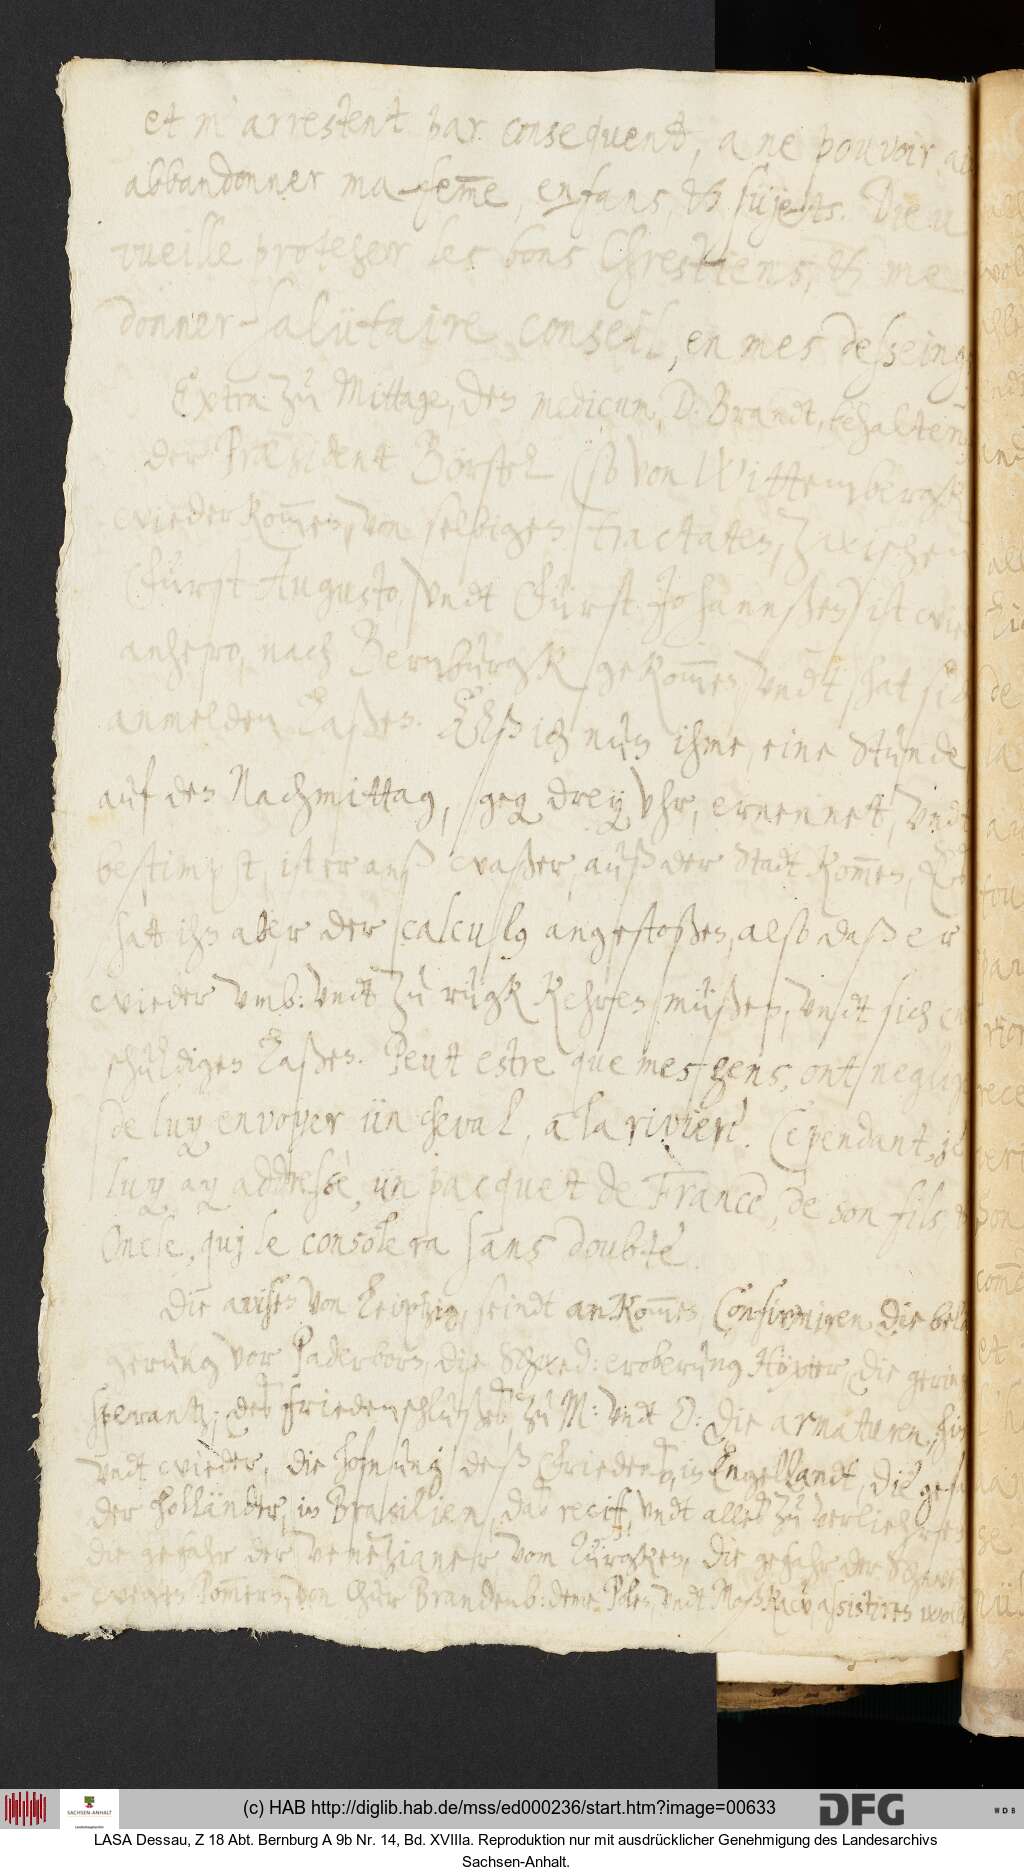 et m'arrestent par consequent, a ne pouvoir
abbandonner ma fem̅e, enfans, & sujects. Dieu
vueille proteger les bons Chrestiens, & me
donner salütaire conseil, en mes desseings
Extra zu Mittage, den medicum, D. Brandt, behalten
der Præsident Börstel, (so von Wittembergk
wieder kom̅en, von selbigen tractaten, zwischen
Fürst Augusto, vndt Fürst Johannßen) ist
anhero, nach Bernburgk gekom̅en vndt hat sich
anmelden laßen. Alß ich nun ihme, eine Stunde
auf den Nachmittag, geg. drey vhr, ernennet, vndt
bestimpt, ist er ans waßer, auß der Stadt kom̅en,
hat ihn aber der calculus angestoßen, also daß er
wieder vmb: vndt zu rügk kehren müßen, vndt sich
schuldigen laßen. Peut estre que mes gens, ont
de luy envoyer ün cheval, a la riviere. Cependant, je
luy ay addressè, ün pacquet de France, de son fils
Oncle, quj le consolera sans doubte.
Die avisen von Leiptzig, seindt ankom̅en, Confirmiren die
gerung vor Paderborn, die Schwed: eroberung Höxter, die
sperantz, deß friedenschlußes, zu M: vndt O: die armaturen, hin
vndt wieder, die hofnung deß Friedens, in Engellandt, die
der Holländer, in Brasilien, das reciff, vndt alles zu verliehren
die gefahr der Venezianer vom Türgken, die gefahr der
wegen Pom̅ern, von Chur Brandenb: deme Polen, vndt Moßkow assistiren
(c) HAB http://diglib.hab.de/mss/ed000236/start.htm?image=00633
DFG
WDB
SACHSEN-ANHALT
LASA Dessau, Z 18 Abt. Bernburg A 9b Nr. 14, Bd. XVIIIa. Reproduktion nur mit ausdrücklicher Genehmigung des Landesarchivs
Sachsen-Anhalt.